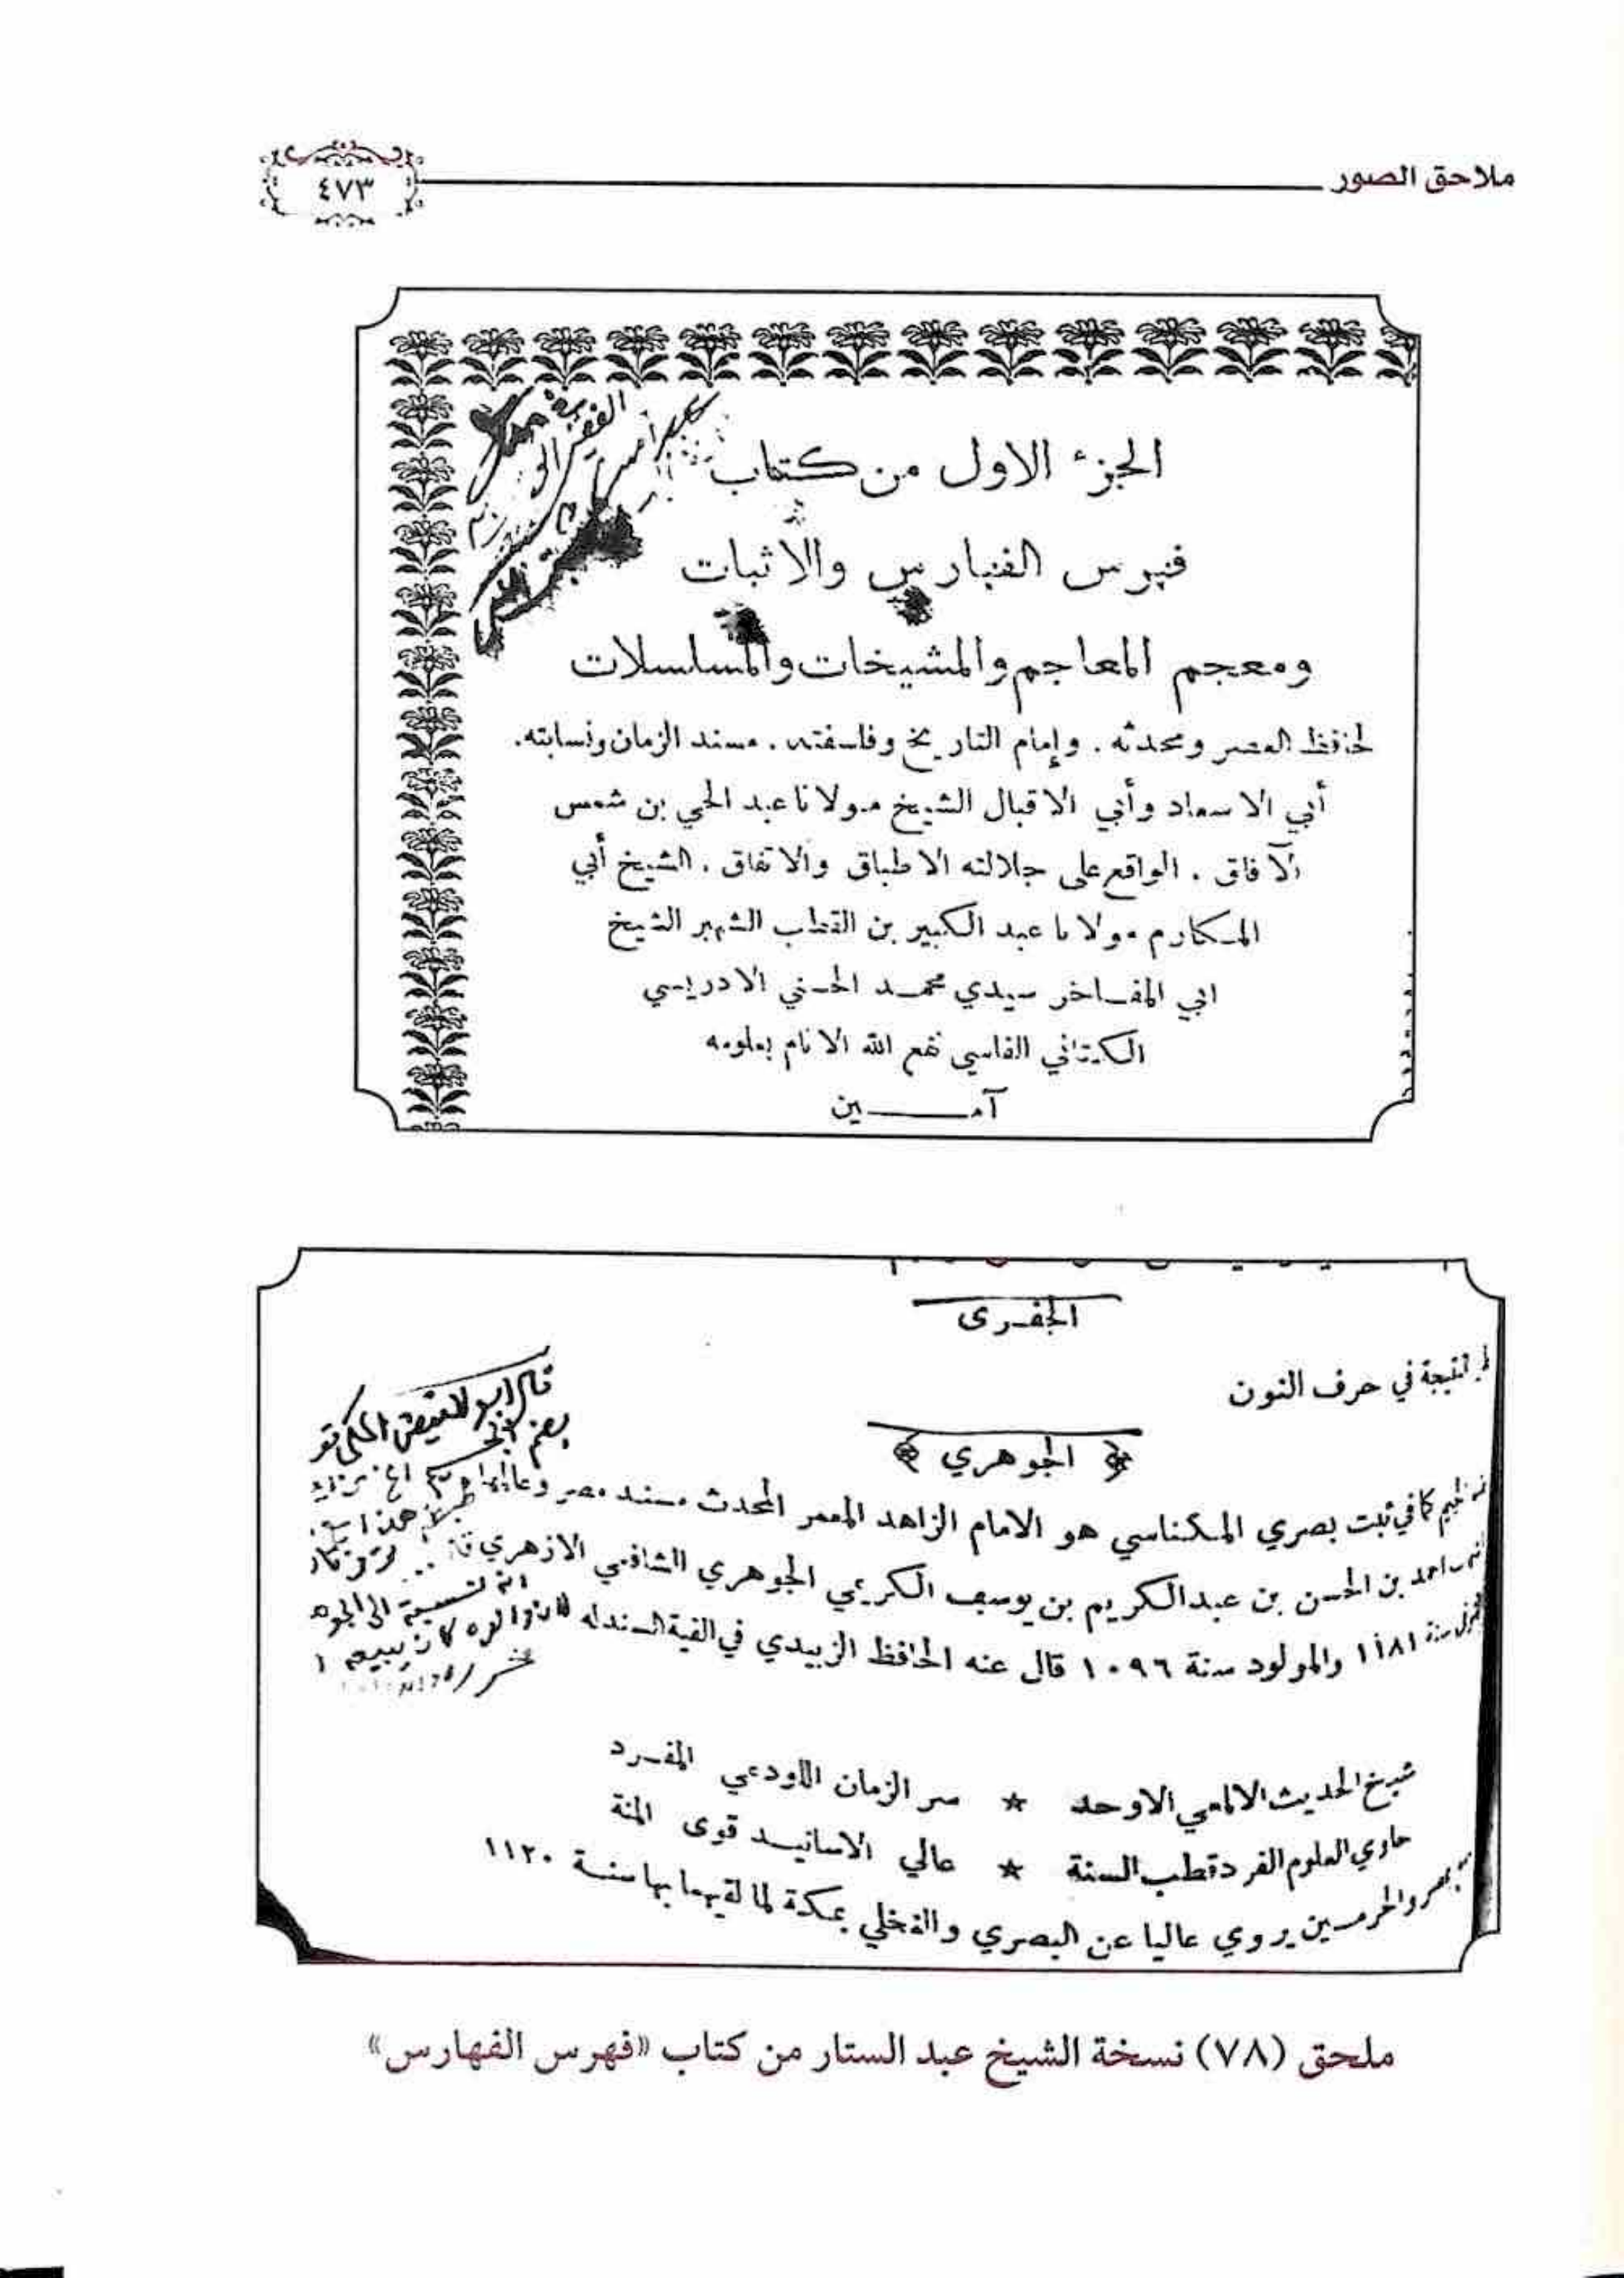 ملاحق الصور
٤٧٣
الجزء الاول من كتاب
فهرس الفهارس والاثبات
ومعجم المعاجم والمشيخات والمسلسلات
لحافظ العصر ومحدثه . وإمام التاريخ وفلسفته . مسند الزمان ونسابته .
أبي الاسعاد وأبي الاقبال الشيخ مولانا عبد الحي بن شمس
الآفاق . الواقع على جلالته الاطباق والاتفاق . الشيخ أبي
المكارم مولانا عبد الكبير بن القطب الشهير الشيخ
ابي المفاخر سيدي محمد الحسني الادريسي
الكتاني الفاسي نفع الله الانام بعلومه
آمـــين
الجفرى
النتيجة في حرف النون
﴿ الجوهري ﴾
كما في ثبت بصري المكناسي هو الامام الزاهد المعمر المحدث مسند مصر وعالمها
احمد بن الحسن بن عبد الكريم بن يوسف الكريمي الجوهري الشافعي الازهري
سنة ١١٨١ والمولود سنة ١٠٩٦ قال عنه الحافظ الزبيدي في الفية السند له
قال ابو الفيض المكي
بضم الجيم
هذا
نسبة الى الجوهر
والده كان يبيع
شيخ الحديث الالمعي الاوحد ★ سر الزمان اللوذعي المفرد
حاوي العلوم الفرد قطب السنة ★ عالي الاسانيد قوى المنة
بمصر والحرمين يروي عاليا عن البصري والنخلي بمكة لما لقيهما بها سنة ١١٢٠
ملحق (٧٨) نسخة الشيخ عبد الستار من كتاب «فهرس الفهارس»